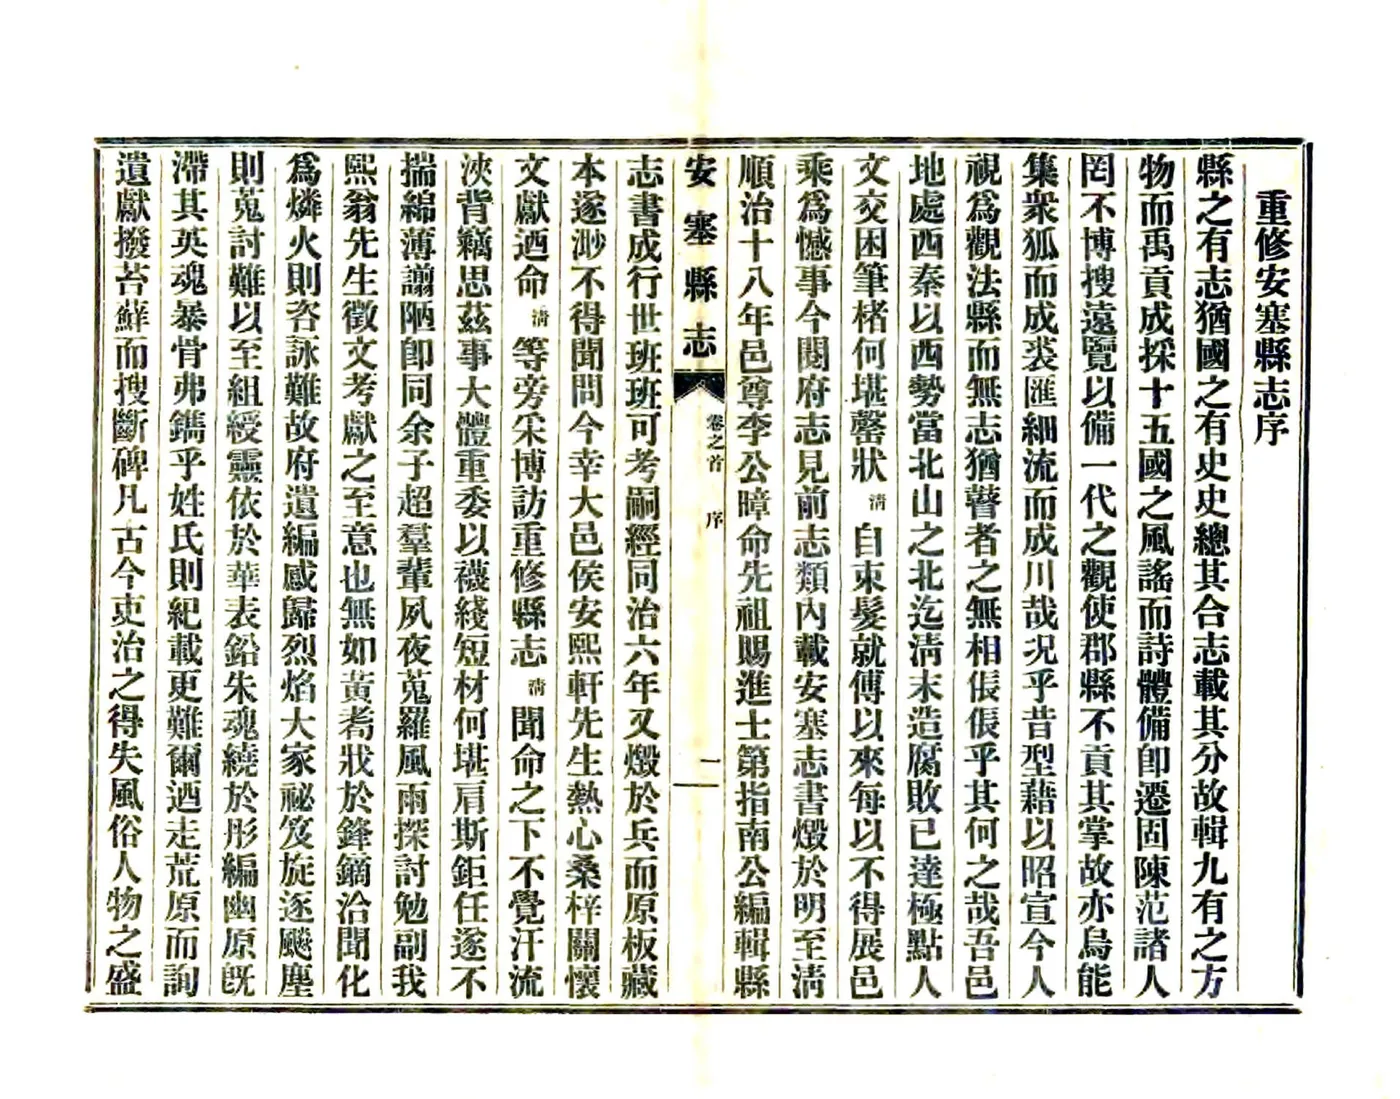 重修安塞縣志序
縣之有志猶國之有史史總其合志載其分故輯九有之方
物而禹貢成採十五國之風謠而詩體備卽遷固陳范諸人
罔不博搜遠覽以備一代之觀使郡縣不貢其掌故亦烏能
集衆狐而成裘匯細流而成川哉況乎昔型藉以昭宣今人
視爲觀法縣而無志猶瞽者之無相倀倀乎其何之哉吾邑
地處西秦以西勢當北山之北迄淸末造腐敗已達極點人
文交困筆楮何堪罄狀淸自束髮就傅以來每以不得展邑
乘爲憾事今閱府志見前志類內載安塞志書燬於明至淸
順治十八年邑尊李公暐命先祖賜進士第指南公編輯縣
安塞縣志
卷之首 序
一
志書成行世班班可考嗣經同治六年又燬於兵而原板藏
本遂渺不得聞問今幸大邑侯安熙軒先生熱心桑梓關懷
文獻迺命淸等旁采博訪重修縣志淸聞命之下不覺汗流
浹背竊思茲事大體重委以襪綫短材何堪肩斯鉅任遂不
揣綿薄譾陋卽同余子超羣輩夙夜蒐羅風雨探討勉副我
熙翁先生徵文考獻之至意也無如黃耇戕於鋒鏑洽聞化
爲燐火則咨詠難故府遺編慼歸烈焰大家祕笈旋逐颷塵
則蒐討難以至組綬靈依於華表鉛朱魂繞於彤編幽原旣
滯其英魂暴骨弗鐫乎姓氏則紀載更難爾迺走荒原而詢
遺獻撥苔蘚而搜斷碑凡古今吏治之得失風俗人物之盛